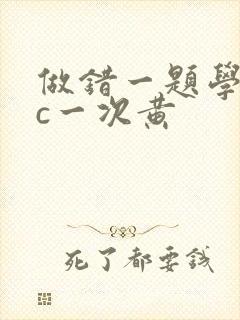 做錯一題學
c一次黄
死了都要錢